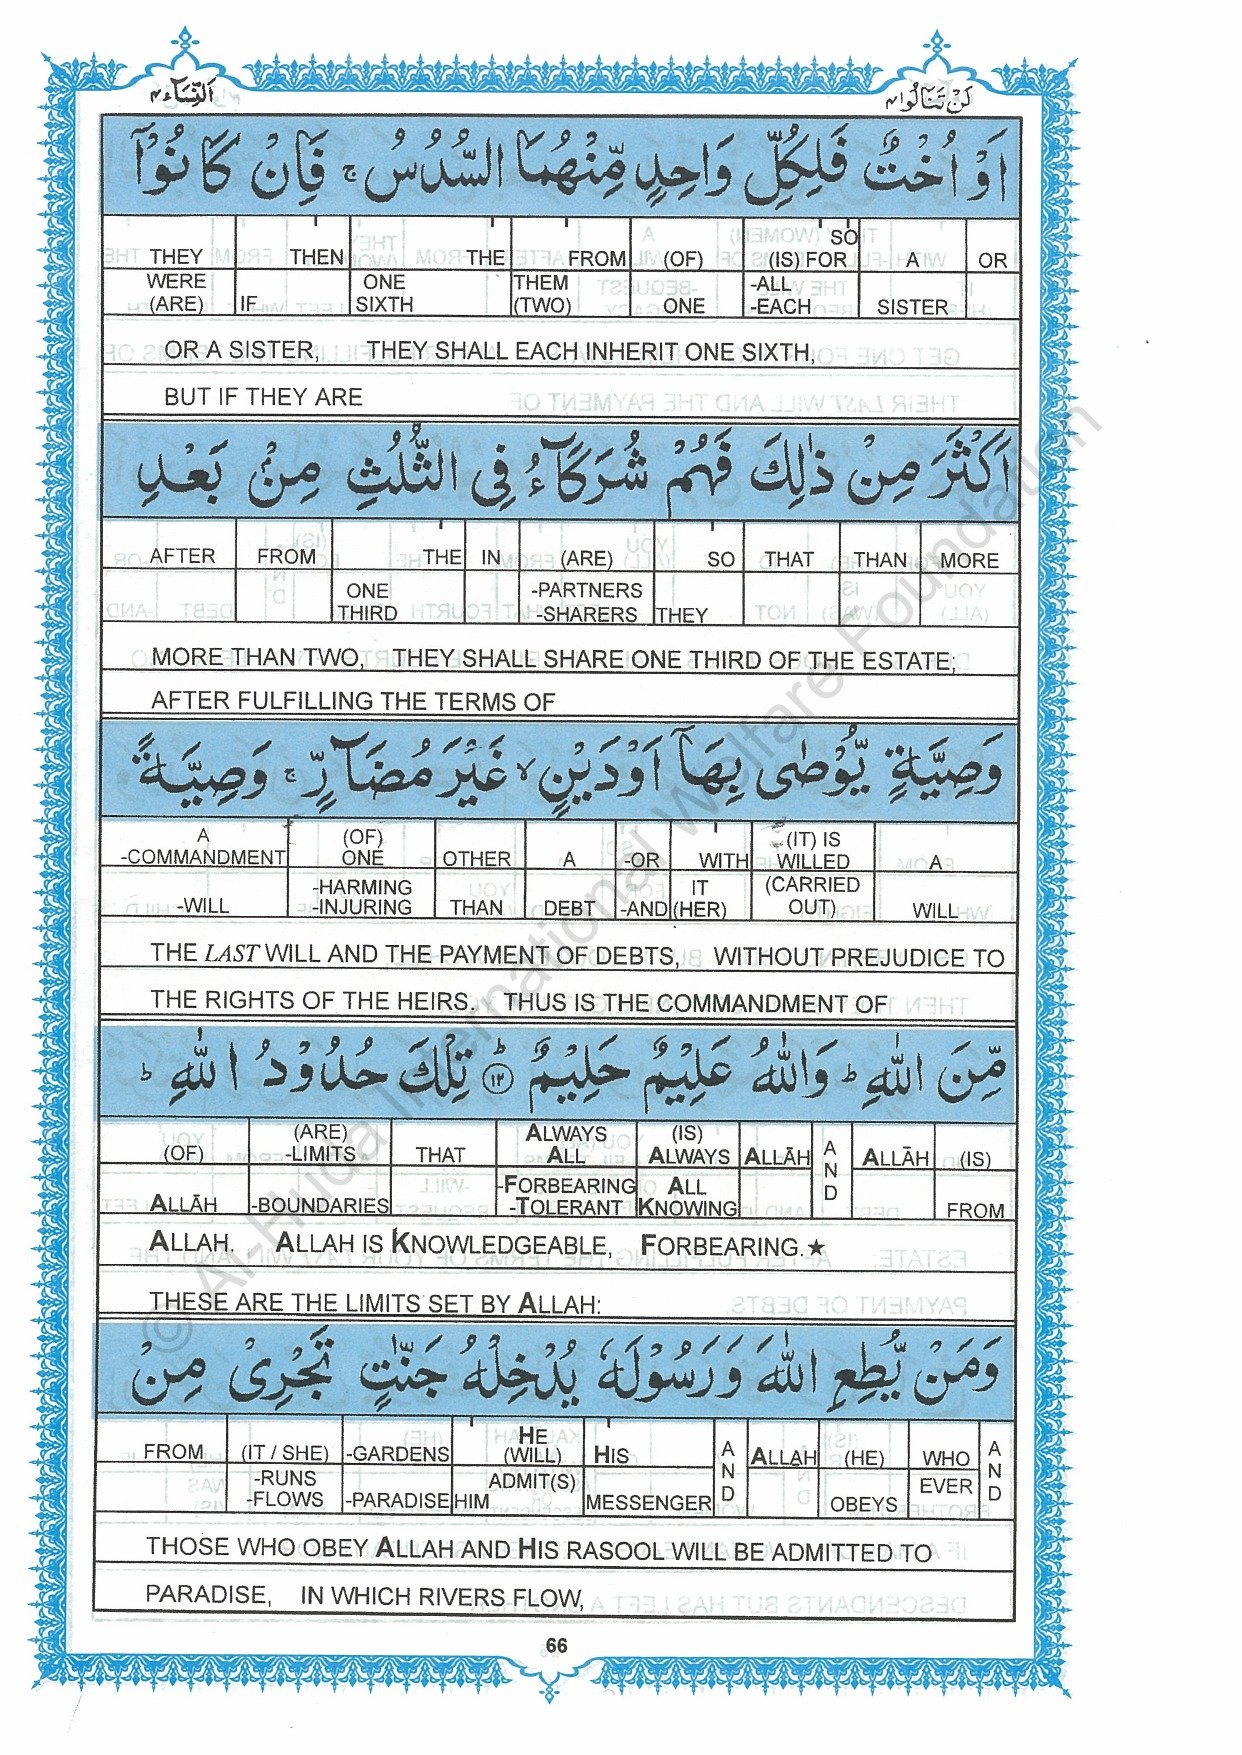 اَلنِّسَآء٤
لَنْ تَنَالُوا٤
اَوْ اُخْتٌ فَلِكُلِّ وَاحِدٍ مِّنْهُمَا السُّدُسُ ۚ فَاِنْ كَانُوْٓا
THEY THEN THE FROM (OF) SO (IS) FOR A OR
WERE (ARE) IF ONE SIXTH THEM (TWO) ONE -ALL -EACH SISTER
OR A SISTER, THEY SHALL EACH INHERIT ONE SIXTH,
BUT IF THEY ARE
اَكْثَرَ مِنْ ذٰلِكَ فَهُمْ شُرَكَآءُ فِى الثُّلُثِ مِنْۢ بَعْدِ
AFTER FROM THE IN (ARE) SO THAT THAN MORE
ONE THIRD -PARTNERS -SHARERS THEY
MORE THAN TWO, THEY SHALL SHARE ONE THIRD OF THE ESTATE;
AFTER FULFILLING THE TERMS OF
وَصِيَّةٍ يُّوْصٰى بِهَآ اَوْدَيْنٍ ۙ غَيْرَ مُضَآرٍّ ۚ وَصِيَّةً
A -COMMANDMENT (OF) ONE OTHER A -OR WITH (IT) IS WILLED A
-WILL -HARMING -INJURING THAN DEBT -AND IT (HER) (CARRIED OUT) WILL
THE LAST WILL AND THE PAYMENT OF DEBTS, WITHOUT PREJUDICE TO
THE RIGHTS OF THE HEIRS. THUS IS THE COMMANDMENT OF
مِّنَ اللّٰهِ ؕ وَاللّٰهُ عَلِيْمٌ حَلِيْمٌ ؕ ۝١٢ تِلْكَ حُدُوْدُ اللّٰهِ ؕ
(OF) (ARE) -LIMITS THAT ALWAYS ALL (IS) ALWAYS ALLĀH AND ALLĀH (IS)
ALLĀH -BOUNDARIES -FORBEARING -TOLERANT ALL KNOWING FROM
ALLAH. ALLAH IS KNOWLEDGEABLE, FORBEARING.★
THESE ARE THE LIMITS SET BY ALLAH:
وَمَنْ يُّطِعِ اللّٰهَ وَرَسُوْلَهٗ يُدْخِلْهُ جَنّٰتٍ تَجْرِىْ مِنْ
FROM (IT / SHE) -GARDENS HE (WILL) HIS AND ALLAH (HE) WHO AND
-RUNS -FLOWS -PARADISE HIM ADMIT(S) MESSENGER OBEYS EVER
THOSE WHO OBEY ALLAH AND HIS RASOOL WILL BE ADMITTED TO
PARADISE, IN WHICH RIVERS FLOW,
66
© Al-Huda International Welfare Foundation